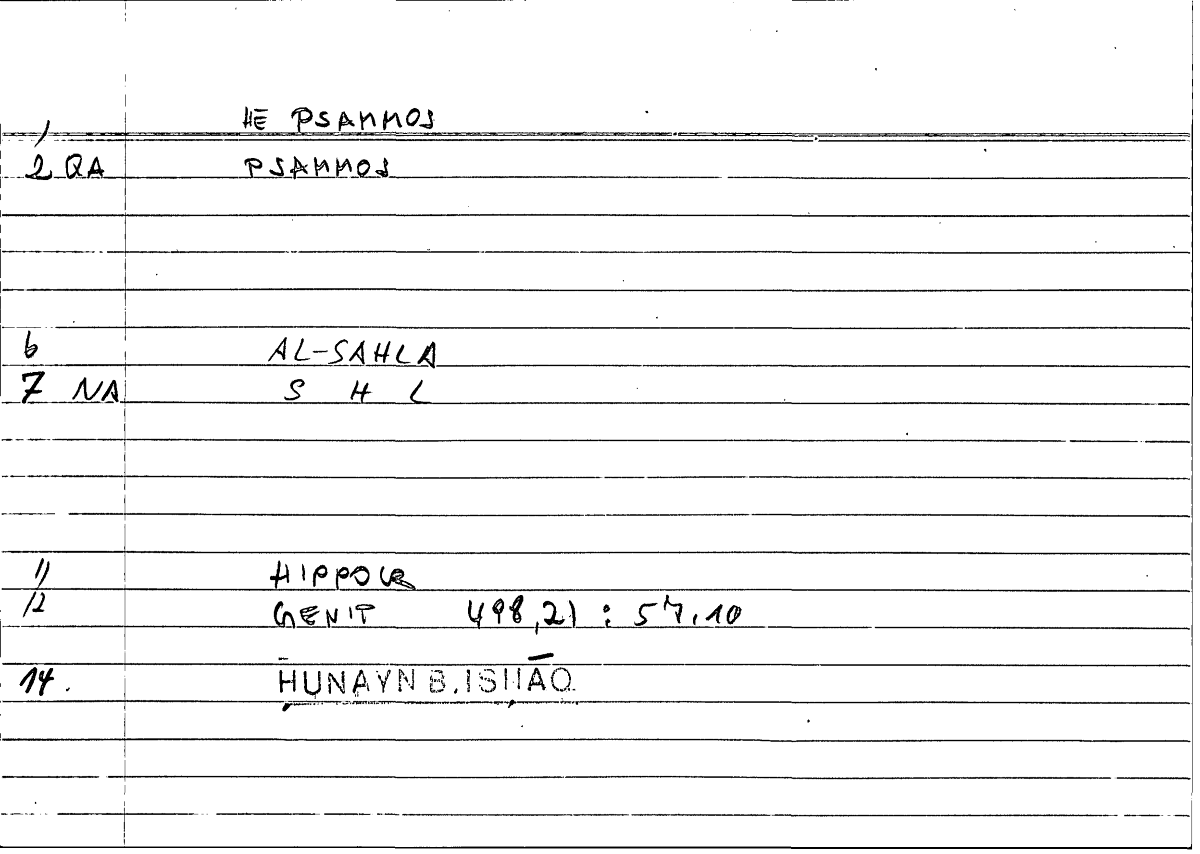 1 HĒ PSAMMOS
2 QA PSAMMOS
6 AL-SAHLA
7 NA S H L
11 HIPPOCR
12 GENIT 498,21 : 57,10
14. ḤUNAYN B. ISḤĀQ